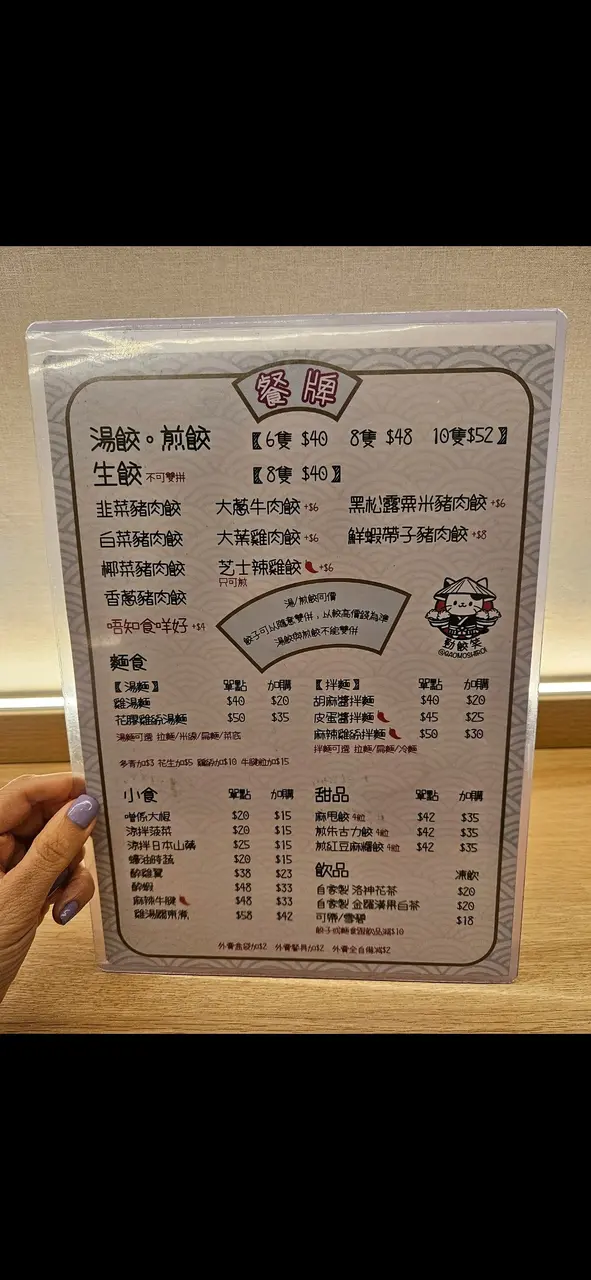 餐牌
湯餃。煎餃 【6隻 $40 8隻 $48 10隻$52】
生餃 不可雙拼 【8隻 $40】
韮菜豬肉餃 大蔥牛肉餃 +$6 黑松露粟米豬肉餃 +$6
白菜豬肉餃 大葉雞肉餃 +$6 鮮蝦帶子豬肉餃 +$8
椰菜豬肉餃 芝士辣雞餃 +$6
只可煎
香蔥豬肉餃
唔知食咩好 +$4
湯/煎餃同價
餃子可以隨意雙併,以較高價錢為準
湯餃與煎餃不能雙併
勁餃笑
@GAOMOSHIROI
麵食
【湯麵】 單點 加購
雞湯麵 $40 $20
花膠雞絲湯麵 $50 $35
湯麵可選 拉麵/米線/扁麵/菜底
多青加$3 花生加$5 雞絲加$10 牛腱粒加$15
【拌麵】 單點 加購
胡麻醬拌麵 $40 $20
皮蛋醬拌麵 $45 $25
麻辣雞絲拌麵 $50 $30
拌麵可選 拉麵/扁麵/冷麵
小食 單點 加購
噌係大根 $20 $15
涼拌菠菜 $20 $15
涼拌日本山藥 $25 $15
蠔油時蔬 $20 $15
醉雞翼 $38 $23
醉蝦 $48 $33
麻辣牛腱 $48 $33
雞湯關東煮 $58 $42
甜品 單點 加購
麻甩餃 4粒 $42 $35
煎朱古力餃 4粒 $42 $35
煎紅豆麻糬餃 4粒 $42 $35
飲品 凍飲
自家製 洛神花茶 $20
自家製 金羅漢果白茶 $20
可樂/雪碧 $18
餃子或麵食跟飲品減$10
外賣盒袋加$2 外賣餐具加$2 外賣全自備減$2